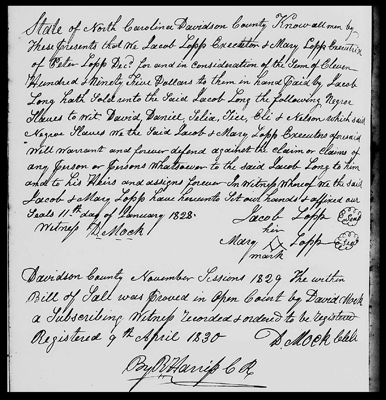 State of North Carolina Davidson County Know all men by
These Presents that We Jacob Lopp Executor & Mary Lopp Executrix
of Peter Lopp Decd. for and in consideration of the Sum of Eleven
Hundred & Ninety Five Dollars to them in hand Paid by Jacob
Long hath Sold unto the Said Jacob Long the following Negroe
Slaves to wit David, Daniel, Felix, Eli & Nelson which said
Negroe Slaves We the Said Jacob & Mary Lopp Executors aforesaid
Will Warrant and forever defend against the claim or claims of
any Person or Persons Whatsoever to the said Jacob Long to him
and to his Heirs and assigns forever In Witness Whereof We the said
Jacob & Mary Lopp have hereunto Set our hands & affixed our
Seals 11th day of January 1828.
Jacob Lopp
Witness D. Mock
her
Mary Lopp
mark
Davidson County November Sessions 1829 The within
Bill of Sall was Proved in Open Court by David Mock
a Subscribing Witness recorded & ordered to be registered
Registered 9th April 1830
D. Mock Clk
By Harris C R